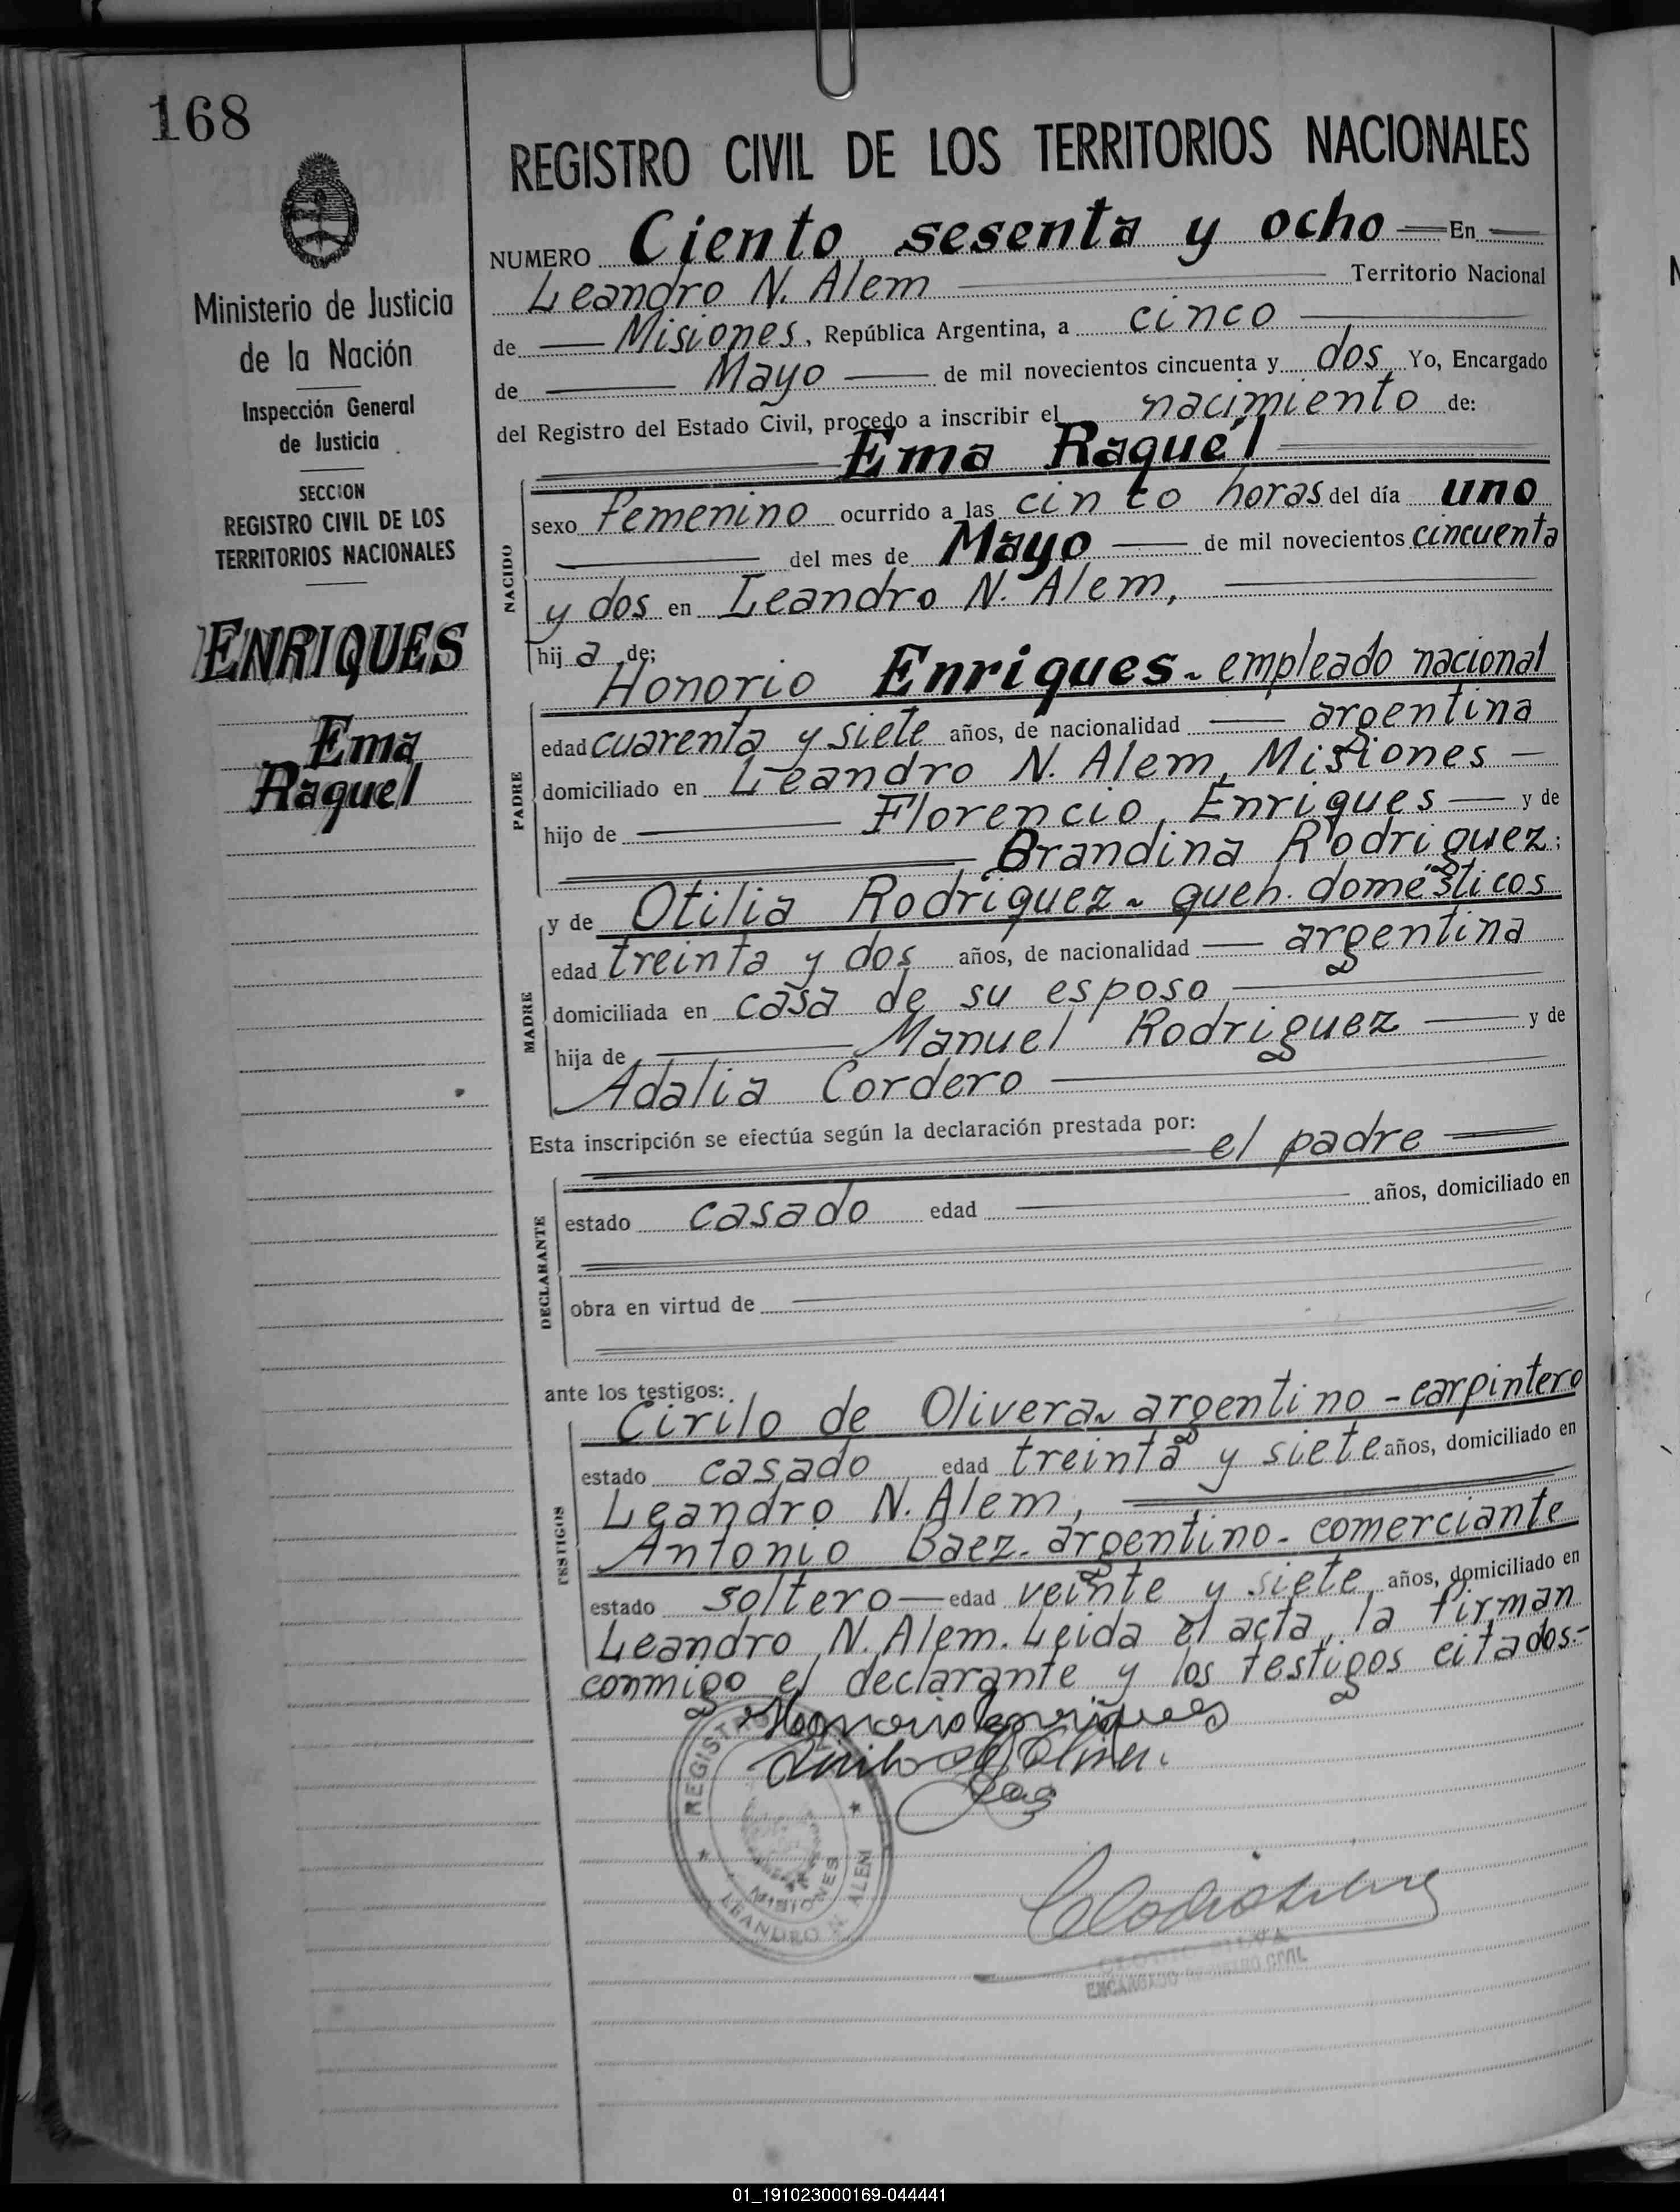 168
Ministerio de Justicia
de la Nación
Inspección General
de Justicia
SECCION
REGISTRO CIVIL DE LOS
TERRITORIOS NACIONALES
ENRIQUES
Ema
Raquel
REGISTRO CIVIL DE LOS TERRITORIOS NACIONALES
NUMERO Ciento sesenta y ocho En
Leandro N. Alem Territorio Nacional
de Misiones, República Argentina, a cinco
de Mayo de mil novecientos cincuenta y dos Yo, Encargado
del Registro del Estado Civil, procedo a inscribir el nacimiento de:
Ema Raquel
NACIDO
sexo femenino ocurrido a las cinco horas del día uno
del mes de Mayo de mil novecientos cincuenta
y dos en Leandro N. Alem,
hij a de:
Honorio Enriques - empleado nacional
PADRE
edad cuarenta y siete años, de nacionalidad argentina
domiciliado en Leandro N. Alem, Misiones
hijo de Florencio Enriques y de
Brandina Rodriguez:
y de Otilia Rodriguez - queh. domésticos
MADRE
edad treinta y dos años, de nacionalidad argentina
domiciliada en casa de su esposo
hija de Manuel Rodriguez y de
Adalia Cordero
Esta inscripción se efectúa según la declaración prestada por:
el padre
DECLARANTE
estado casado edad años, domiciliado en
obra en virtud de
ante los testigos:
Cirilo de Olivera - argentino - carpintero
TESTIGOS
estado casado edad treinta y siete años, domiciliado en
Leandro N. Alem,
Antonio Baez - argentino - comerciante
estado soltero edad veinte y siete, años, domiciliado en
Leandro N. Alem. Leida el acta, la firman
conmigo el declarante y los testigos citados.-
Honorio Enriques
REGISTRO
MISIONES
LEANDRO N. ALEM
ENCARGADO REGISTRO CIVIL
01_191023000169-044441